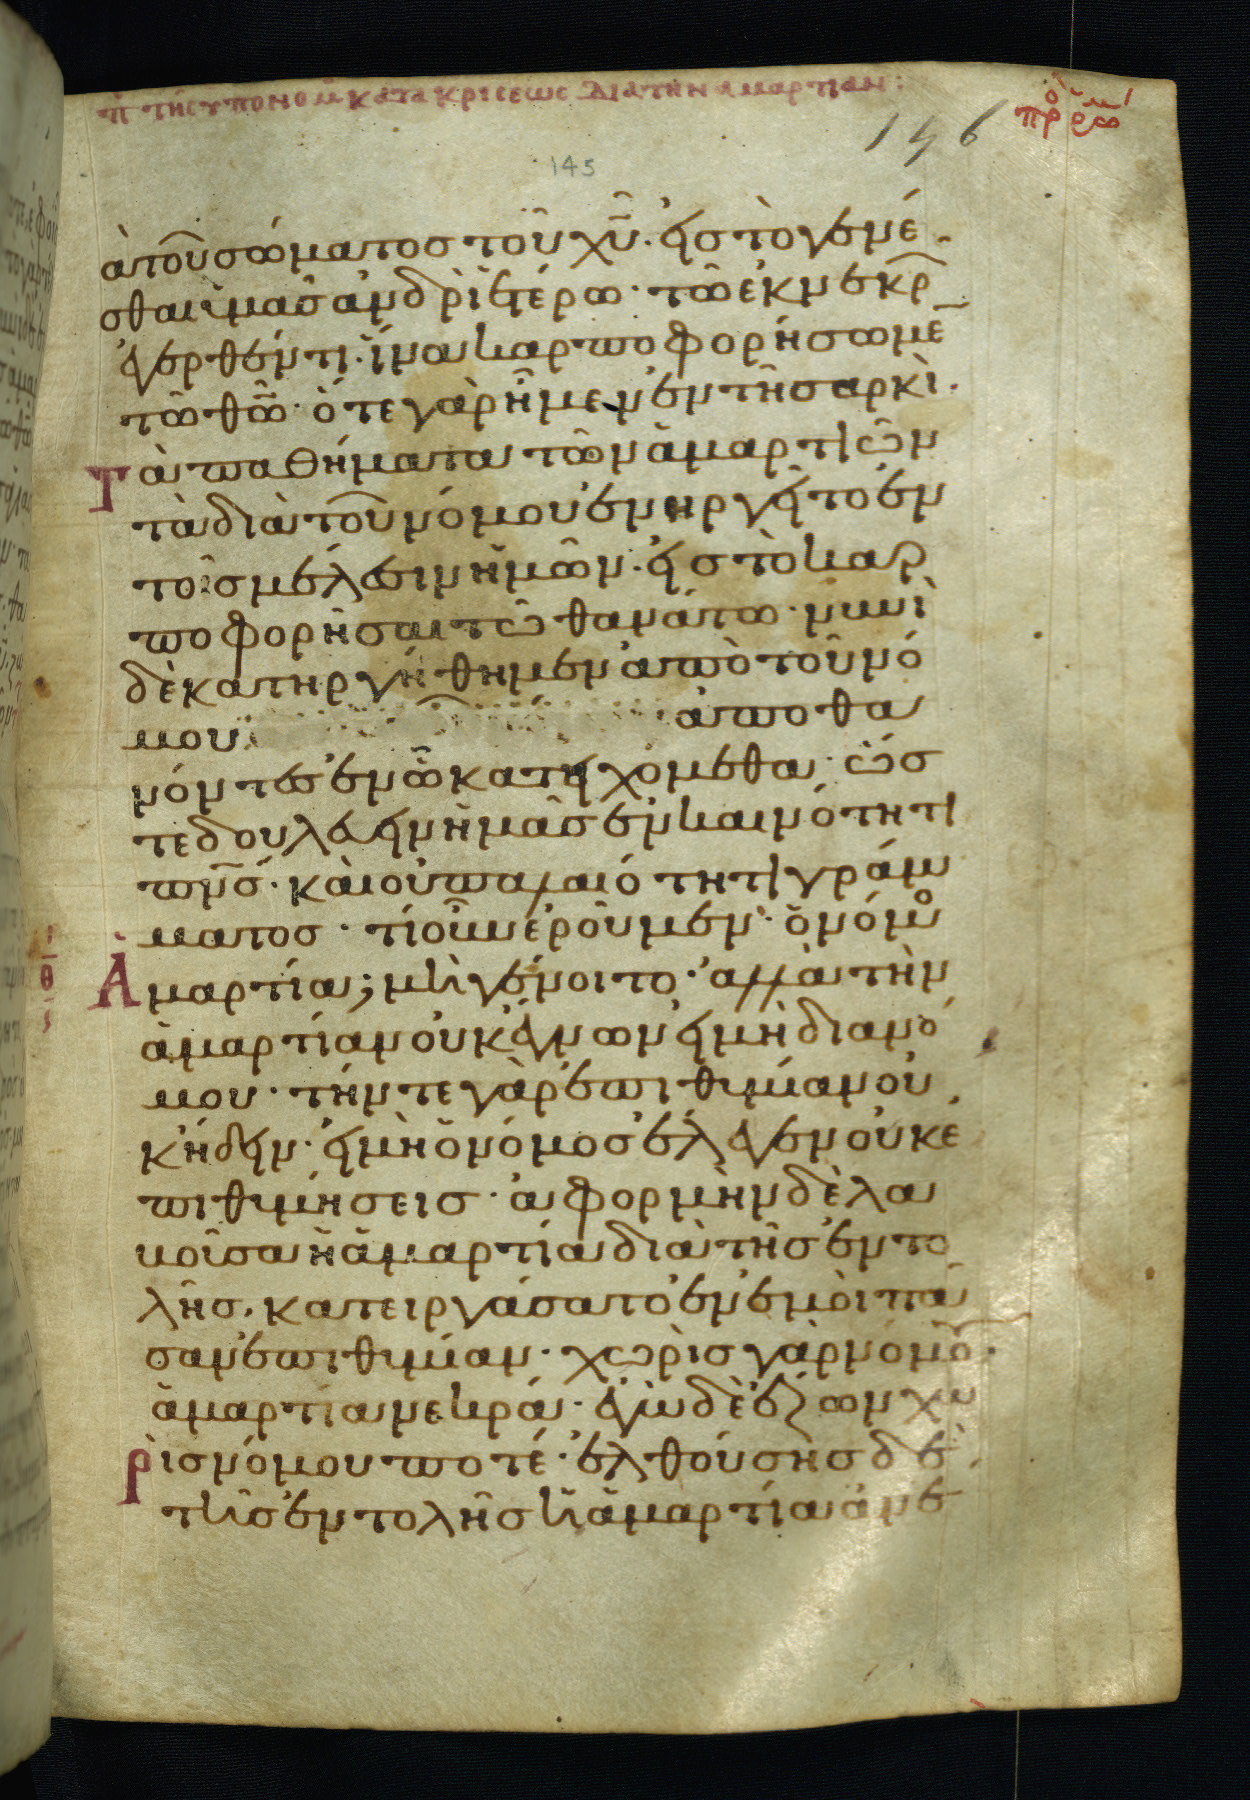 π τῆς ὑπὸ νόμου κατακρίσεως διὰ τὴν ἁμαρτίαν:
146
145
ὰ τοῦ σώματος τοῦ χυ̅· εἰς τὸ γενέ
σθαι ὑμᾶς ἀνδρὶ ἑτέρω· τῶ ἐκ νεκρ
ἐγερθέντι· ἵνα καρποφορήσωμε
τῶ θω̅· ὅτε γὰρ ἦμεν ἐν τῆ σαρκὶ·
Τὰ παθήματα τῶν ἁμαρτιῶν
τὰ διὰ τοῦ νόμου ἐνηργεῖτο ἐν
τοῖς μέλεσιν ἡμῶν· εἰς τὸ καρ
ποφορῆσαι τῶ θανάτω· νυνὶ
δὲ κατηργήθημεν ἀπὸ τοῦ νό
μου ἀποθα
νόντες ἐν ὧ κατειχόμεθα· ὥσ
τε δουλεύειν ἡμᾶς ἐν καινότητι
πνς̅· καὶ οὐ παλαιότητι γράμ
ματος· τί οὖν ἐροῦμεν· ὁ νόμο
Ἁμαρτία; μὴ γένοιτο· ἀλλὰ τὴν
ἁμαρτίαν οὐκ ἔγνων εἰ μὴ διὰ νό
μου· τήν τε γὰρ ἐπιθυμίαν οὐ
κ ἤδειν· εἰ μὴ ὁ νόμος ἔλεγεν οὐκ ἐ
πιθυμήσεις· ἀφορμὴν δὲ λα
βοῦσα ἡ ἁμαρτία διὰ τῆς ἐντο
λῆς, κατειργάσατο ἐν ἐμοὶ πᾶ
σαν ἐπιθυμίαν· χωρὶς γὰρ νόμου·
ἁμαρτία νεκρά· ἐγὼ δὲ ἔζων χω
ρὶς νόμου ποτέ· ἐλθούσης δὲ
τῆς ἐντολῆς ἡ ἁμαρτία ἀνέ